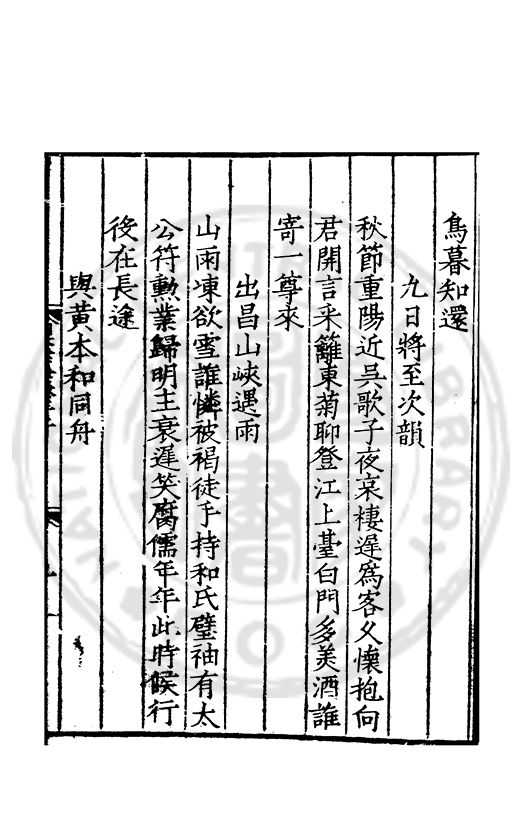 鳥暮知還
九日將至次韻
秋節重陽近吳歌子夜哀棲遲爲客久懷抱向
君開言采籬東菊聊登江上臺白門多美酒誰
寄一尊來
出昌山峽遇雨
山雨凍欲雪誰憐被褐徒手持和氏璧袖有太
公符勲業歸明主衰遲笑腐儒年年此時候行
後在長途
與黃本和同舟